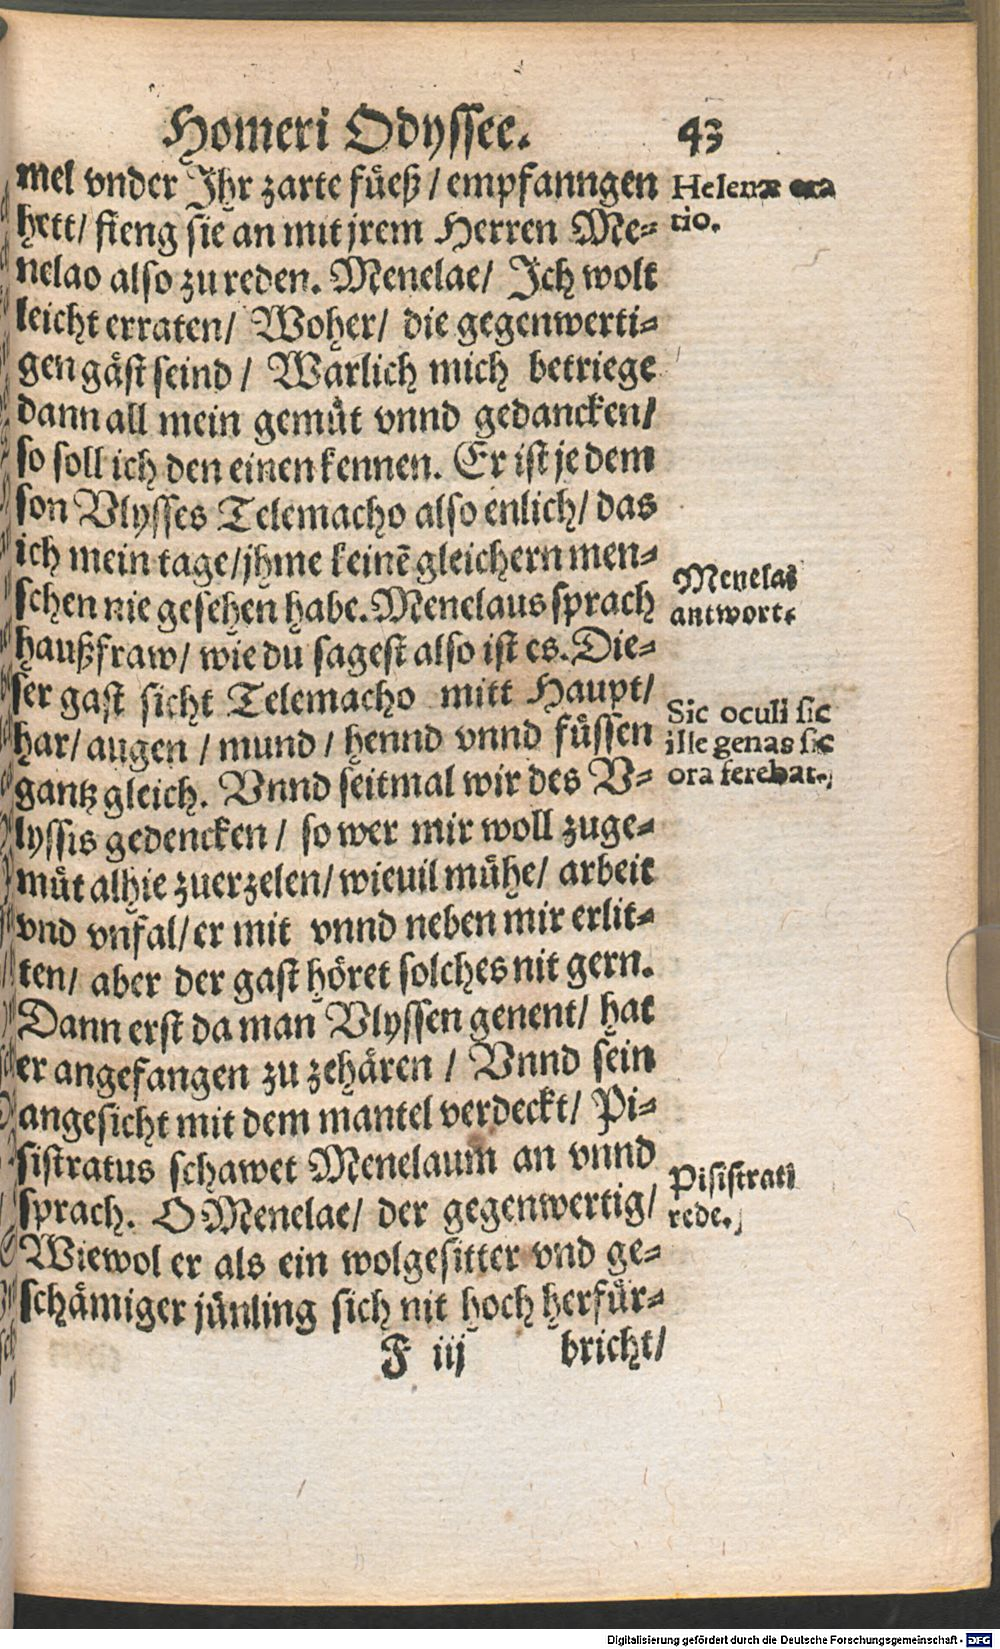 Homeri Odyssee. 43
mel vnder Ihr zarte füeß / empfanngen
hett / fieng sie an mit jrem Herren Me-
nelao also zu reden. Menelae / Ich wolt
leicht erraten / Woher / die gegenwerti-
gen gäst seind / Warlich mich betriege
dann all mein gemüt vnnd gedancken /
so soll ich den einen kennen. Er ist je dem
son Vlysses Telemacho also enlich / das
ich mein tage / jhme keinē gleichern men-
schen nie gesehen habe. Menelaus sprach
haußfraw / wie du sagest also ist es. Die-
ser gast sicht Telemacho mitt Haupt /
har / augen / mund / hennd vnnd füssen
gantz gleich. Vnnd seitmal wir des V-
lyssis gedencken / so wer mir woll zuge-
müt alhie zuerzelen / wieuil mühe / arbeit
vnd vnfal / er mit vnnd neben mir erlit-
ten / aber der gast höret solches nit gern.
Dann erst da man Vlyssen genent / hat
er angefangen zu zehären / Vnnd sein
angesicht mit dem mantel verdeckt / Pi-
sistratus schawet Menelaum an vnnd
sprach. O Menelae / der gegenwertig /
Wiewol er als ein wolgesitter vnd ge-
schämiger jünling sich nit hoch herfür-
F iij bricht /
Helenæ ora
tio.
Menelai
antwort.
Sic oculi sic
ille genas sic
ora ferebat.
Pisistrati
rede.
Digitalisierung gefördert durch die Deutsche Forschungsgemeinschaft - DFG